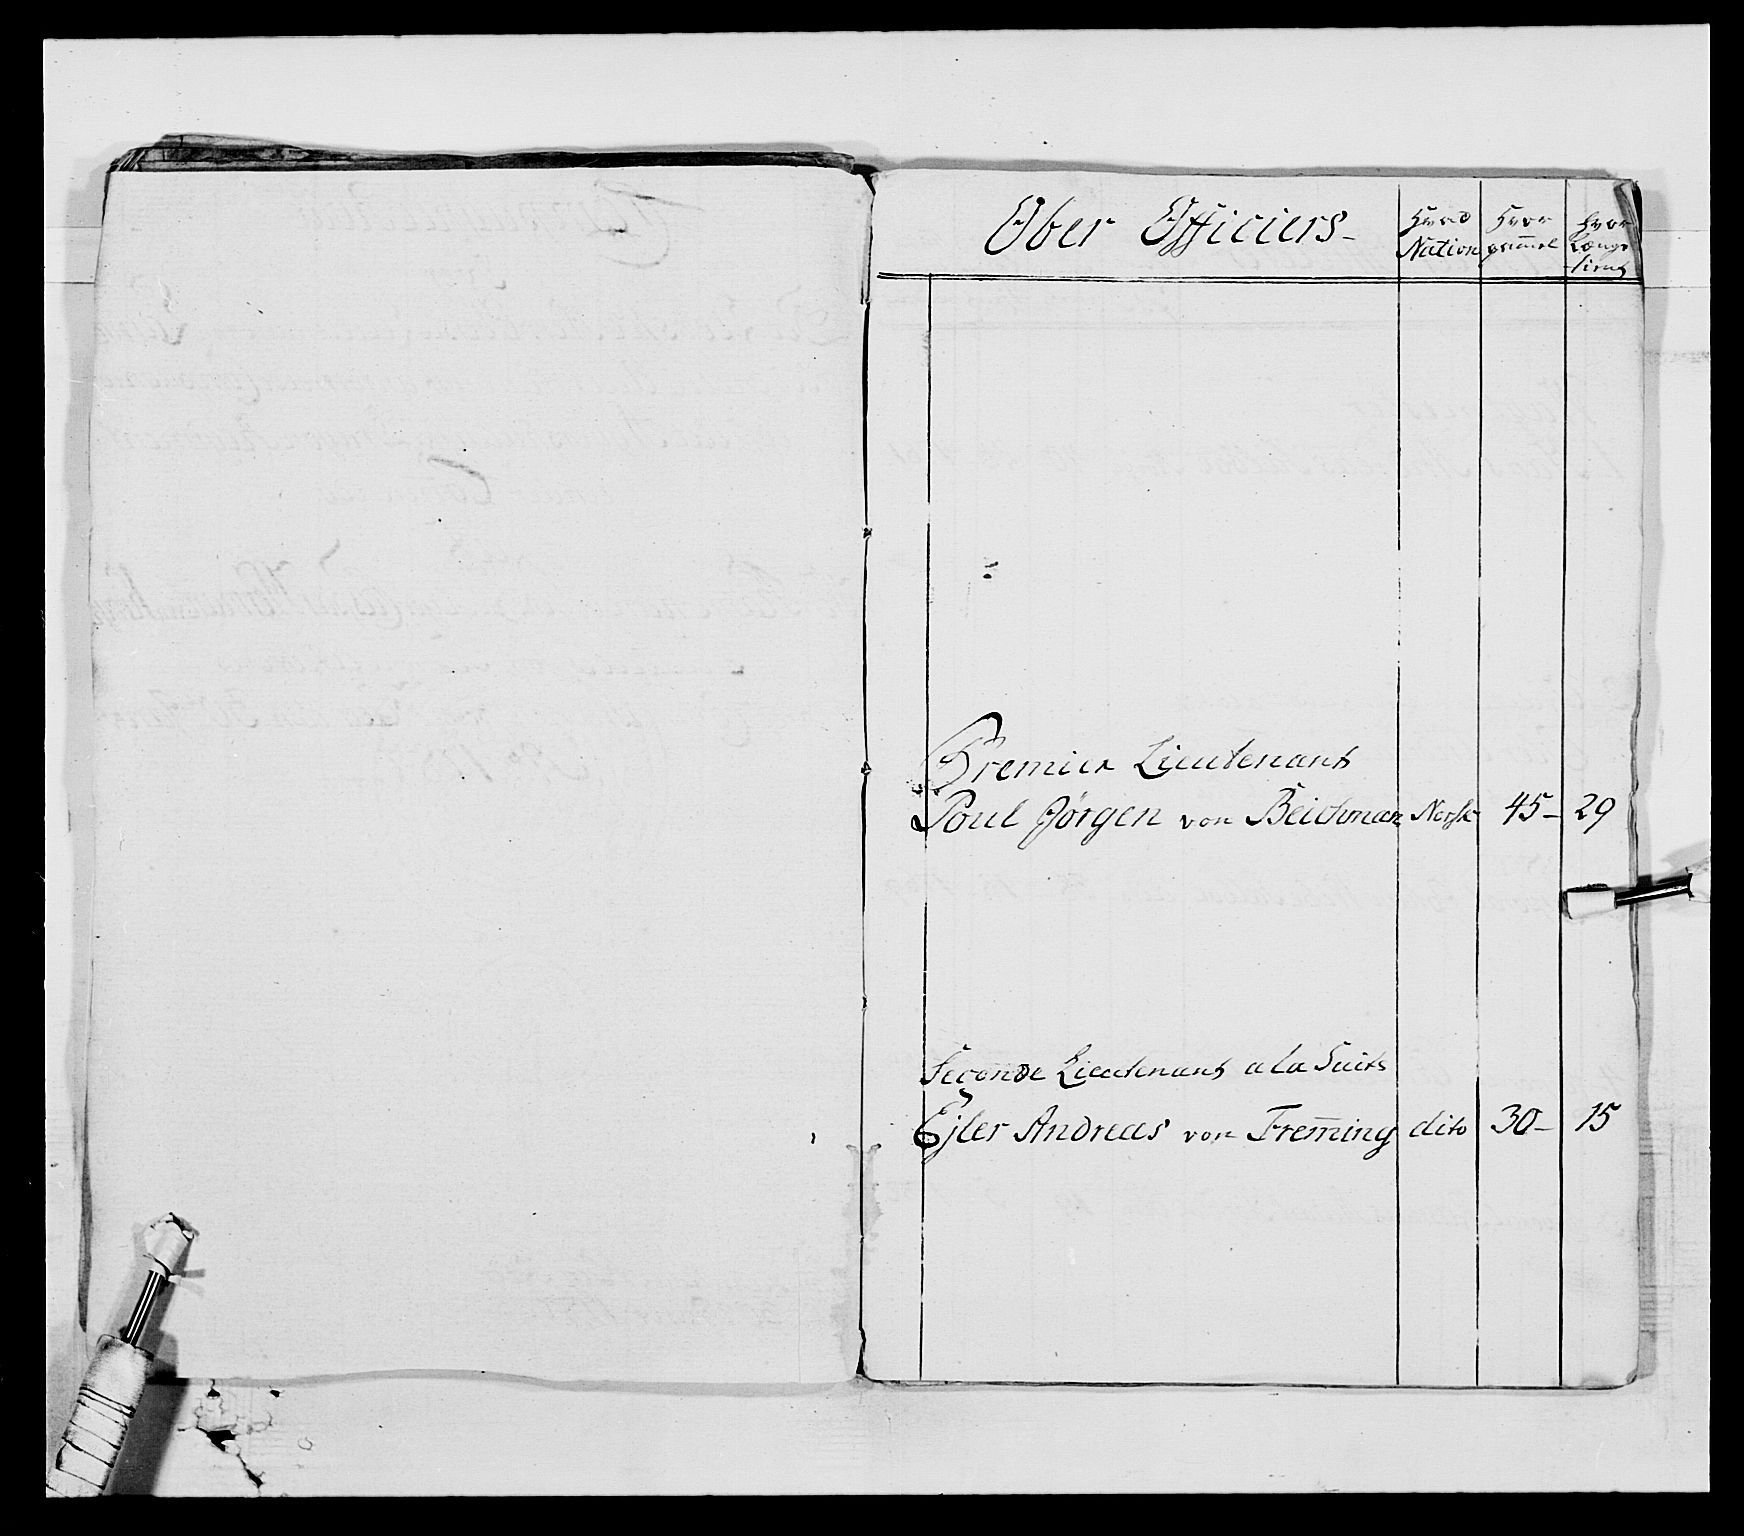 Ober Officiers
Hvad Nation
Hvor gammel
Hvor Længe tient
Premier Lieutenant
Poul Jörgen von Beichman Norsk 45 29
Seconde Lieutenant a la Suite
Ejler Andreas von Frem̅ing dito 30 15